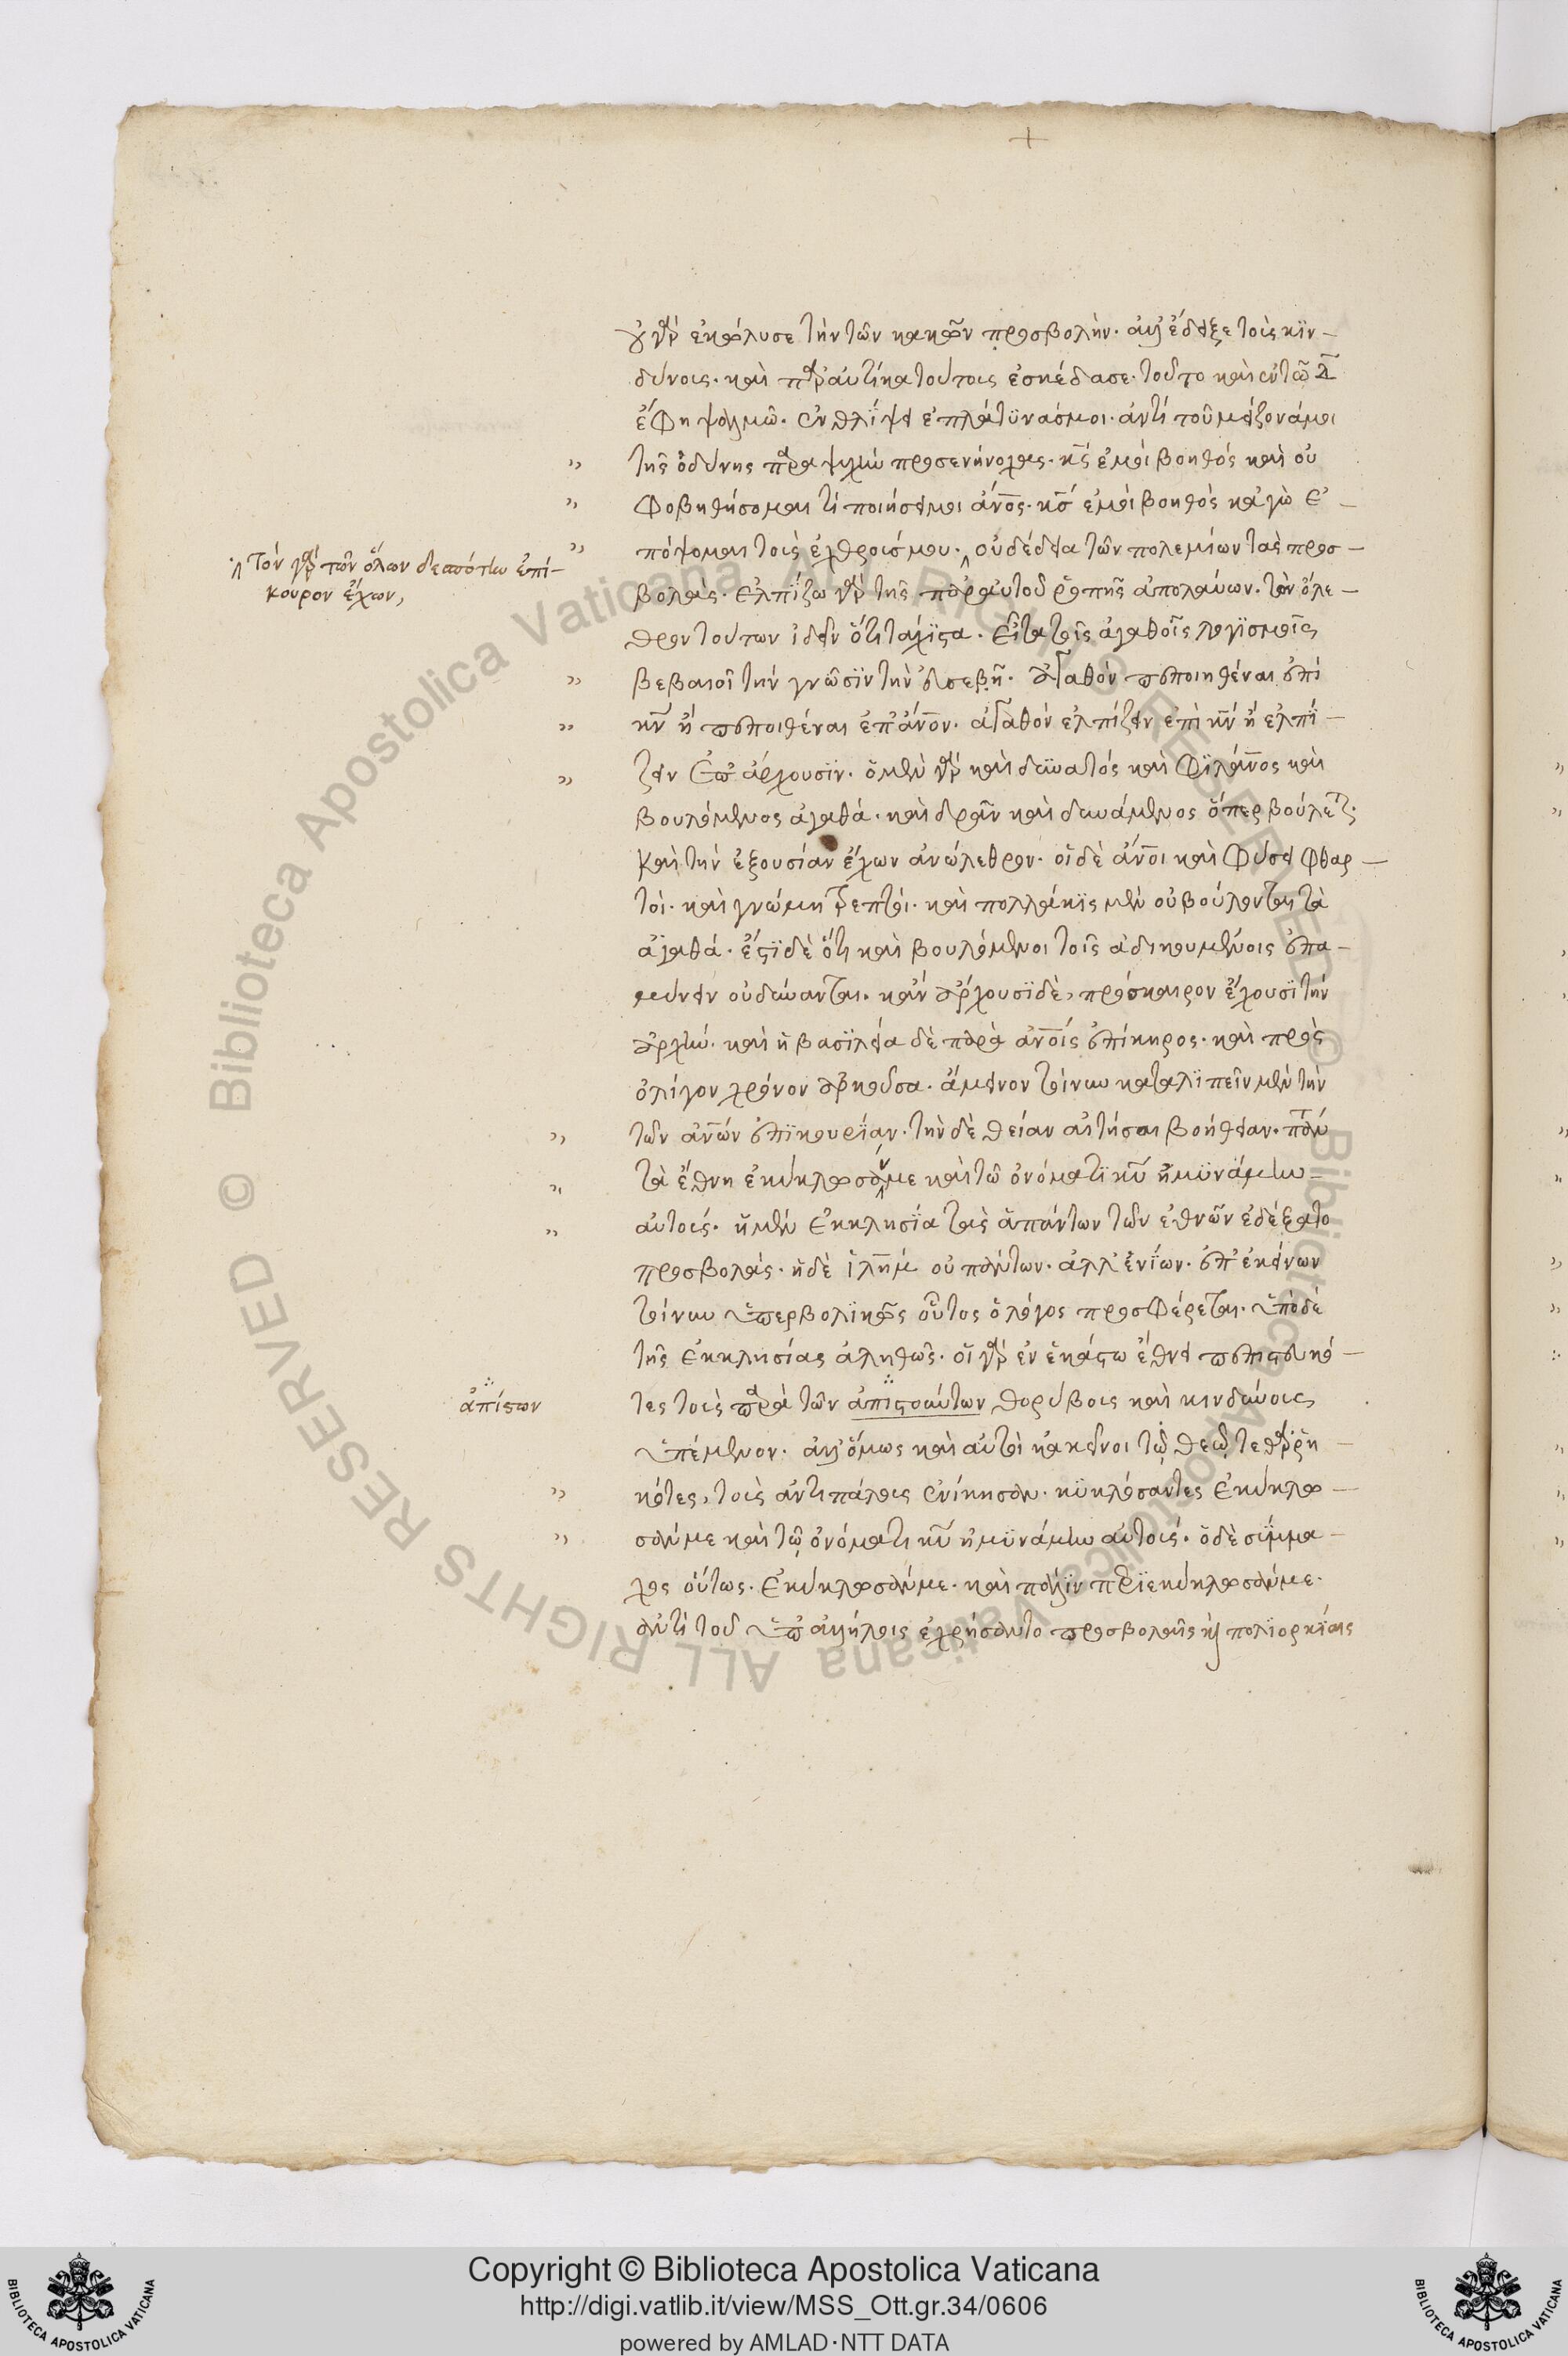 +
οὐ γὰρ ἐκώλυσε τὴν τῶν κακῶν προσβολὴν· ἀλλ' ἔδειξε τοὶς κϊν–
δύνοις· καὶ παραυτίκα τούτοις ἐσκέδασε· τοῦτο καὶ ἐν τῶ Δ
ἔφη ψαλμῶ· ἐν θλίψει ἐπλάτϋνάς μοι· ἀντὶ τοῦ μείζονά μοι
„ τῆς ὀδύνης παραψυχὴν προσενήνοχας· κς ἐμοὶ βοηθὸς καὶ οὐ
„ φοβηθήσομαι τί ποιήσει μοι ἄνος· κς ἐμοὶ βοηθὸς κἀγὼ ἐ–
„ πόψομαι τοὺς ἐχθρούς μου· οὐ δέδια τῶν πολεμίων τὰς προσ–
τὸν γὰρ τῶν ὅλων δεσπότην ἐπί–
κουρον ἔχων,
βολάς· ἐλπίζω γὰρ τῆς παρ' αὐτοῦ ῥοπῆς ἀπολαύων· τὸν ὄλε–
θρον τούτων ἰδεῖν ὅτι τάχϊστα· εἶτα τοῖς ἀγαθοῖς λογϊσμοῖς
„ βεβαιοῖ τὴν γνῶσϊν τὴν εὐσεβῆ· ἀγαθὸν πεποιηθέναι ἐπὶ
„ κν ἢ πεποιθέναι ἐπ' ἄνον· ἀγαθὸν ἐλπίζειν ἐπὶ κν ἢ ἐλπΐ–
„ ζειν ἐπ' ἄρχουσϊν· ὁ μὲν γὰρ καὶ δυνατὸς καὶ φϊλάνος καὶ
βουλόμενος ἀγαθά· καὶ δρᾶν καὶ δυνάμενος ὅπερ βούλεται·
καὶ τὴν ἐξουσίαν ἔχων ἀνώλεθρον· οἱ δὲ ἄνοι καὶ φύσει φθαρ–
τοί· καὶ γνώμη τρεπτοί· καὶ πολλάκϊς μὲν οὐ βούλονται τὰ
ἀγαθά· ἔστϊ δὲ ὅτι καὶ βουλόμενοι τοῖς ἀδικουμένοις ἐπα–
μύνειν οὐ δύνανται· κἂν ἄρχουσϊ δὲ, πρόσκαιρον ἔχουσϊ τὴν
ἀρχήν· καὶ ἡ βασϊλεία δὲ παρὰ ἀνοις ἐπίκηρος· καὶ πρὸς
ὀλίγον χρόνον ἀρκοῦσα· ἄμεινον τοίνυν καταλϊπεῖν μὲν τὴν
„ τῶν ἀνων ἐπϊκουρίαν· τὴν δὲ θείαν αἰτῆσαι βοήθειαν· πάντα
„ τὰ ἔθνη ἐκύκλωσάν με καὶ τῶ ὀνόματϊ κυ ἠμϋνάμην
„ αὐτούς· ἡ μὲν ἐκκλησία τὰς ἁπάντων τῶν ἐθνῶν ἐδέξατο
προσβολάς· ἡ δὲ ἱλημ οὐ πάντων· ἀλλ' ἐνΐων· ἐπ' ἐκείνων
τοίνυν ὑπερβολϊκῶς οὗτος ὁ λόγος προσφέρεται· ὑπὸ δὲ
τῆς ἐκκλησίας ἀληθῶς· οἱ γὰρ ἐν ἑκάστω ἔθνει πεπιστευκό–
τες τοὺς παρὰ τῶν ἀπιστούντων θορύβους καὶ κινδύνους
ἀπίστων
ὑπέμενον· ἀλλ' ὅμως καὶ αὐτοὶ κἀκεῖνοι τῷ θεῷ τεθαρρη–
„ κότες, τοὺς ἀντιπάλους ἐνίκησαν· κϋκλώσαντες ἐκύκλω–
„ σάν με καὶ τῷ ὀνόματι κυ ἠμϋνάμην αὐτούς· ὁ δὲ σύμμα–
χος οὕτως· ἐκύκλωσάν με· καὶ πάλϊν περϊεκύκλωσάν με·
ἀντὶ τοῦ ὑπ' ἀλλήλοις ἐχρήσαντο προσβολαῖς κ πολϊορκίαις
Copyright © Biblioteca Apostolica Vaticana
http://digi.vatlib.it/view/MSS_Ott.gr.34/0606
powered by AMLAD·NTT DATA
BIBLIOTECA APOSTOLICA VATICANA
BIBLIOTECA APOSTOLICA VATICANA
© Biblioteca Apostolica Vaticana ALL RIGHTS RESERVED © Biblioteca Apostolica Vaticana ALL RIGHTS RESERVED